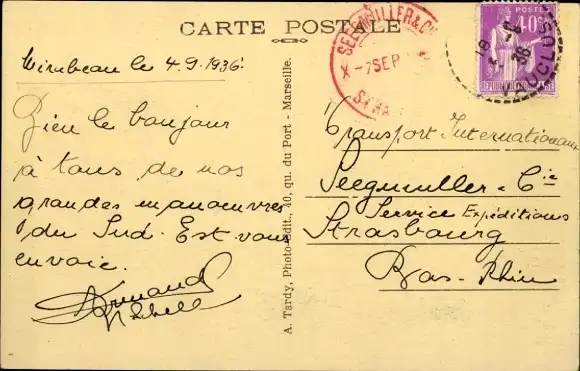 CARTE POSTALE
Mirabeau le 4.9.1936
Bien le bonjour
à tous de nos
grandes manoeuvres
du Sud-Est vous
envoie.
Armand
A. Tardy, Photo-Édit., 40, qu. du Port - Marseille.
SEEGMULLER & Cie
X -7 SEP
POSTES
40c
36
VAUCLUSE
Transport Internationaux
Seegmuller & Cie
Service Expéditions
Strasbourg
Bas-Rhin